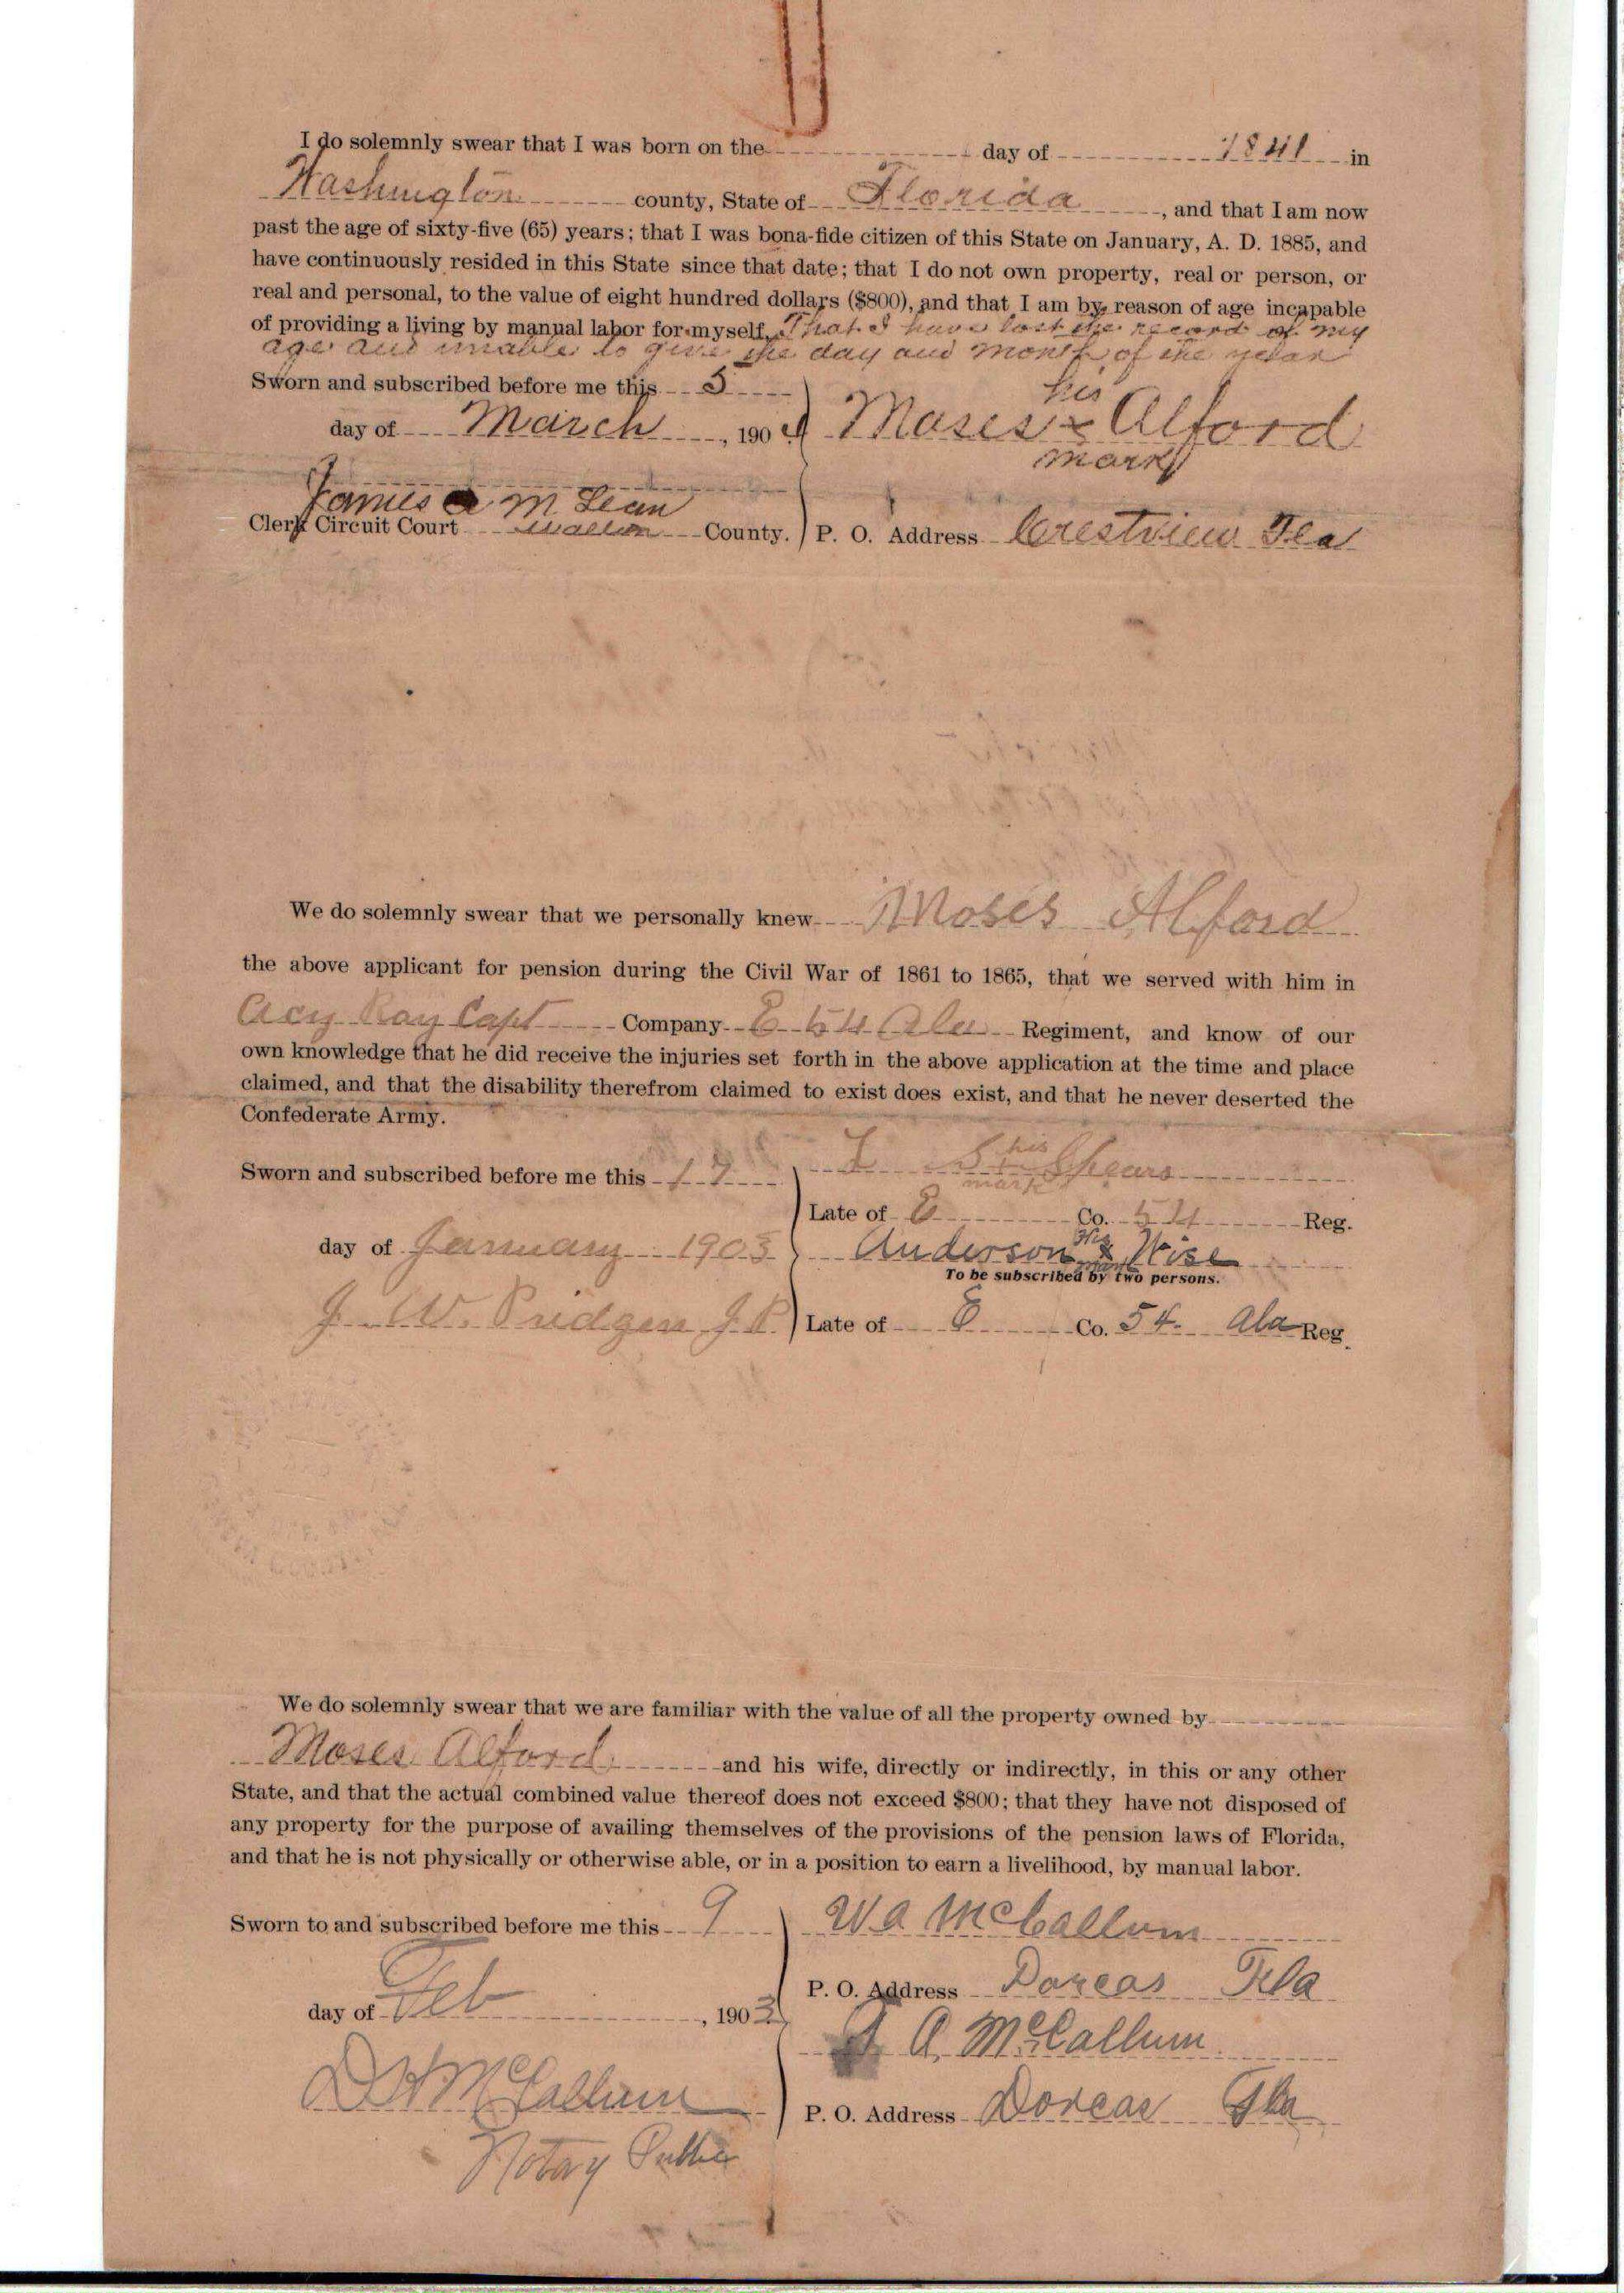 I do solemnly swear that I was born on the day of 1841 in
Washington county, State of Florida, and that I am now
past the age of sixty-five (65) years; that I was bona-fide citizen of this State on January, A. D. 1885, and
have continuously resided in this State since that date; that I do not own property, real or person, or
real and personal, to the value of eight hundred dollars ($800), and that I am by reason of age incapable
of providing a living by manual labor for myself, That I have lost the record of my
age and unable to give the day and month of the year
Sworn and subscribed before me this 5
his
day of March, 190 Moses x Alford
mark
James M Lean
Clerk Circuit Court Walton County. P. O. Address Crestview Fla
We do solemnly swear that we personally knew Moses Alford
the above applicant for pension during the Civil War of 1861 to 1865, that we served with him in
Acy Ray Capt Company E 54 Ala Regiment, and know of our
own knowledge that he did receive the injuries set forth in the above application at the time and place
claimed, and that the disability therefrom claimed to exist does exist, and that he never deserted the
Confederate Army.
his
Sworn and subscribed before me this 17 Spears
mark
Late of E Co. 54 Reg.
his
day of January 1903 Anderson x Wise
mark
To be subscribed by two persons.
J. W. Pridgen J. P. Late of E Co. 54. Ala Reg.
We do solemnly swear that we are familiar with the value of all the property owned by
Moses Alford and his wife, directly or indirectly, in this or any other
State, and that the actual combined value thereof does not exceed $800; that they have not disposed of
any property for the purpose of availing themselves of the provisions of the pension laws of Florida,
and that he is not physically or otherwise able, or in a position to earn a livelihood, by manual labor.
Sworn to and subscribed before me this 9 W A McCallum
P. O. Address Dorcas Fla
day of Feb, 1903
A. McCallum
D H McCallum
P. O. Address Dorcas Fla
Notary Public